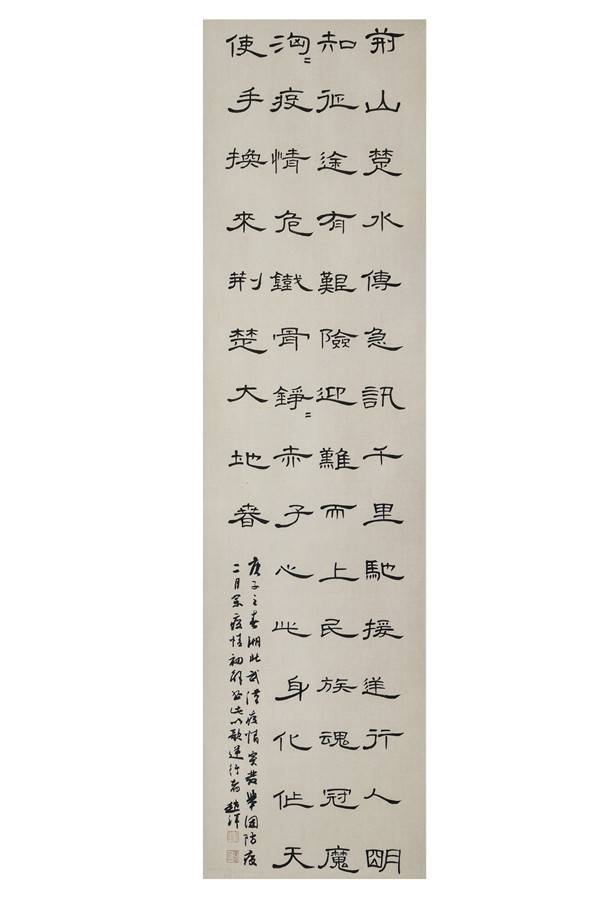 荊山楚水傳急訊千里馳援逆行人明
知征途有艱險迎難而上民族魂冠魔
洶〻疫情危鐵骨錚〻赤子心此身化作天
使手換來荊楚大地春
庚子之春湖北武漢疫情突發舉國防疫
二月疫情初解書此以歌逆行者趙